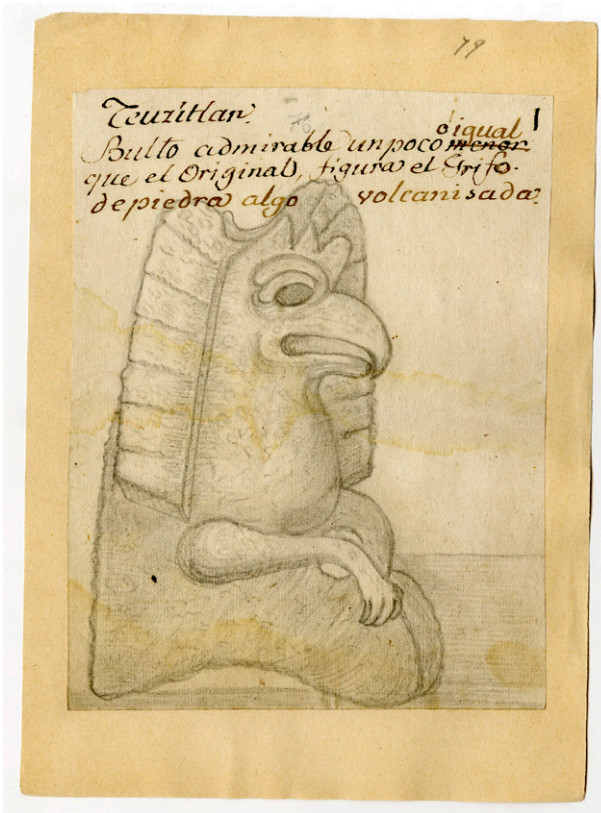 79
Teuzitlan.
o igual 1
Bulto admirable un poco menor
que el Original, figura el Grifo.
de piedra algo volcanisada.